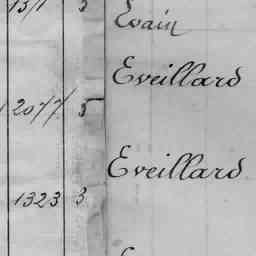 1371 5 Evain
Eveillard
12077 5
Eveillard
1323 3